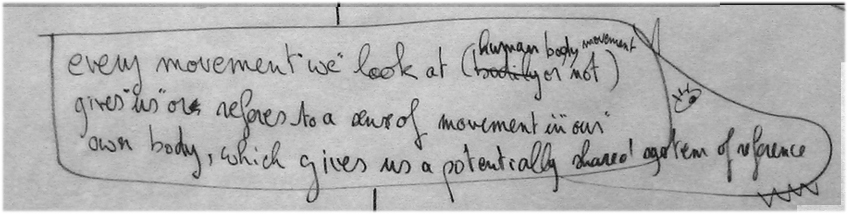 human body movement
every movement "we" look at (bodily or not)
gives "us" or referes to a sense of movement in "our"
own body, which gives us a potentially shared system of reference